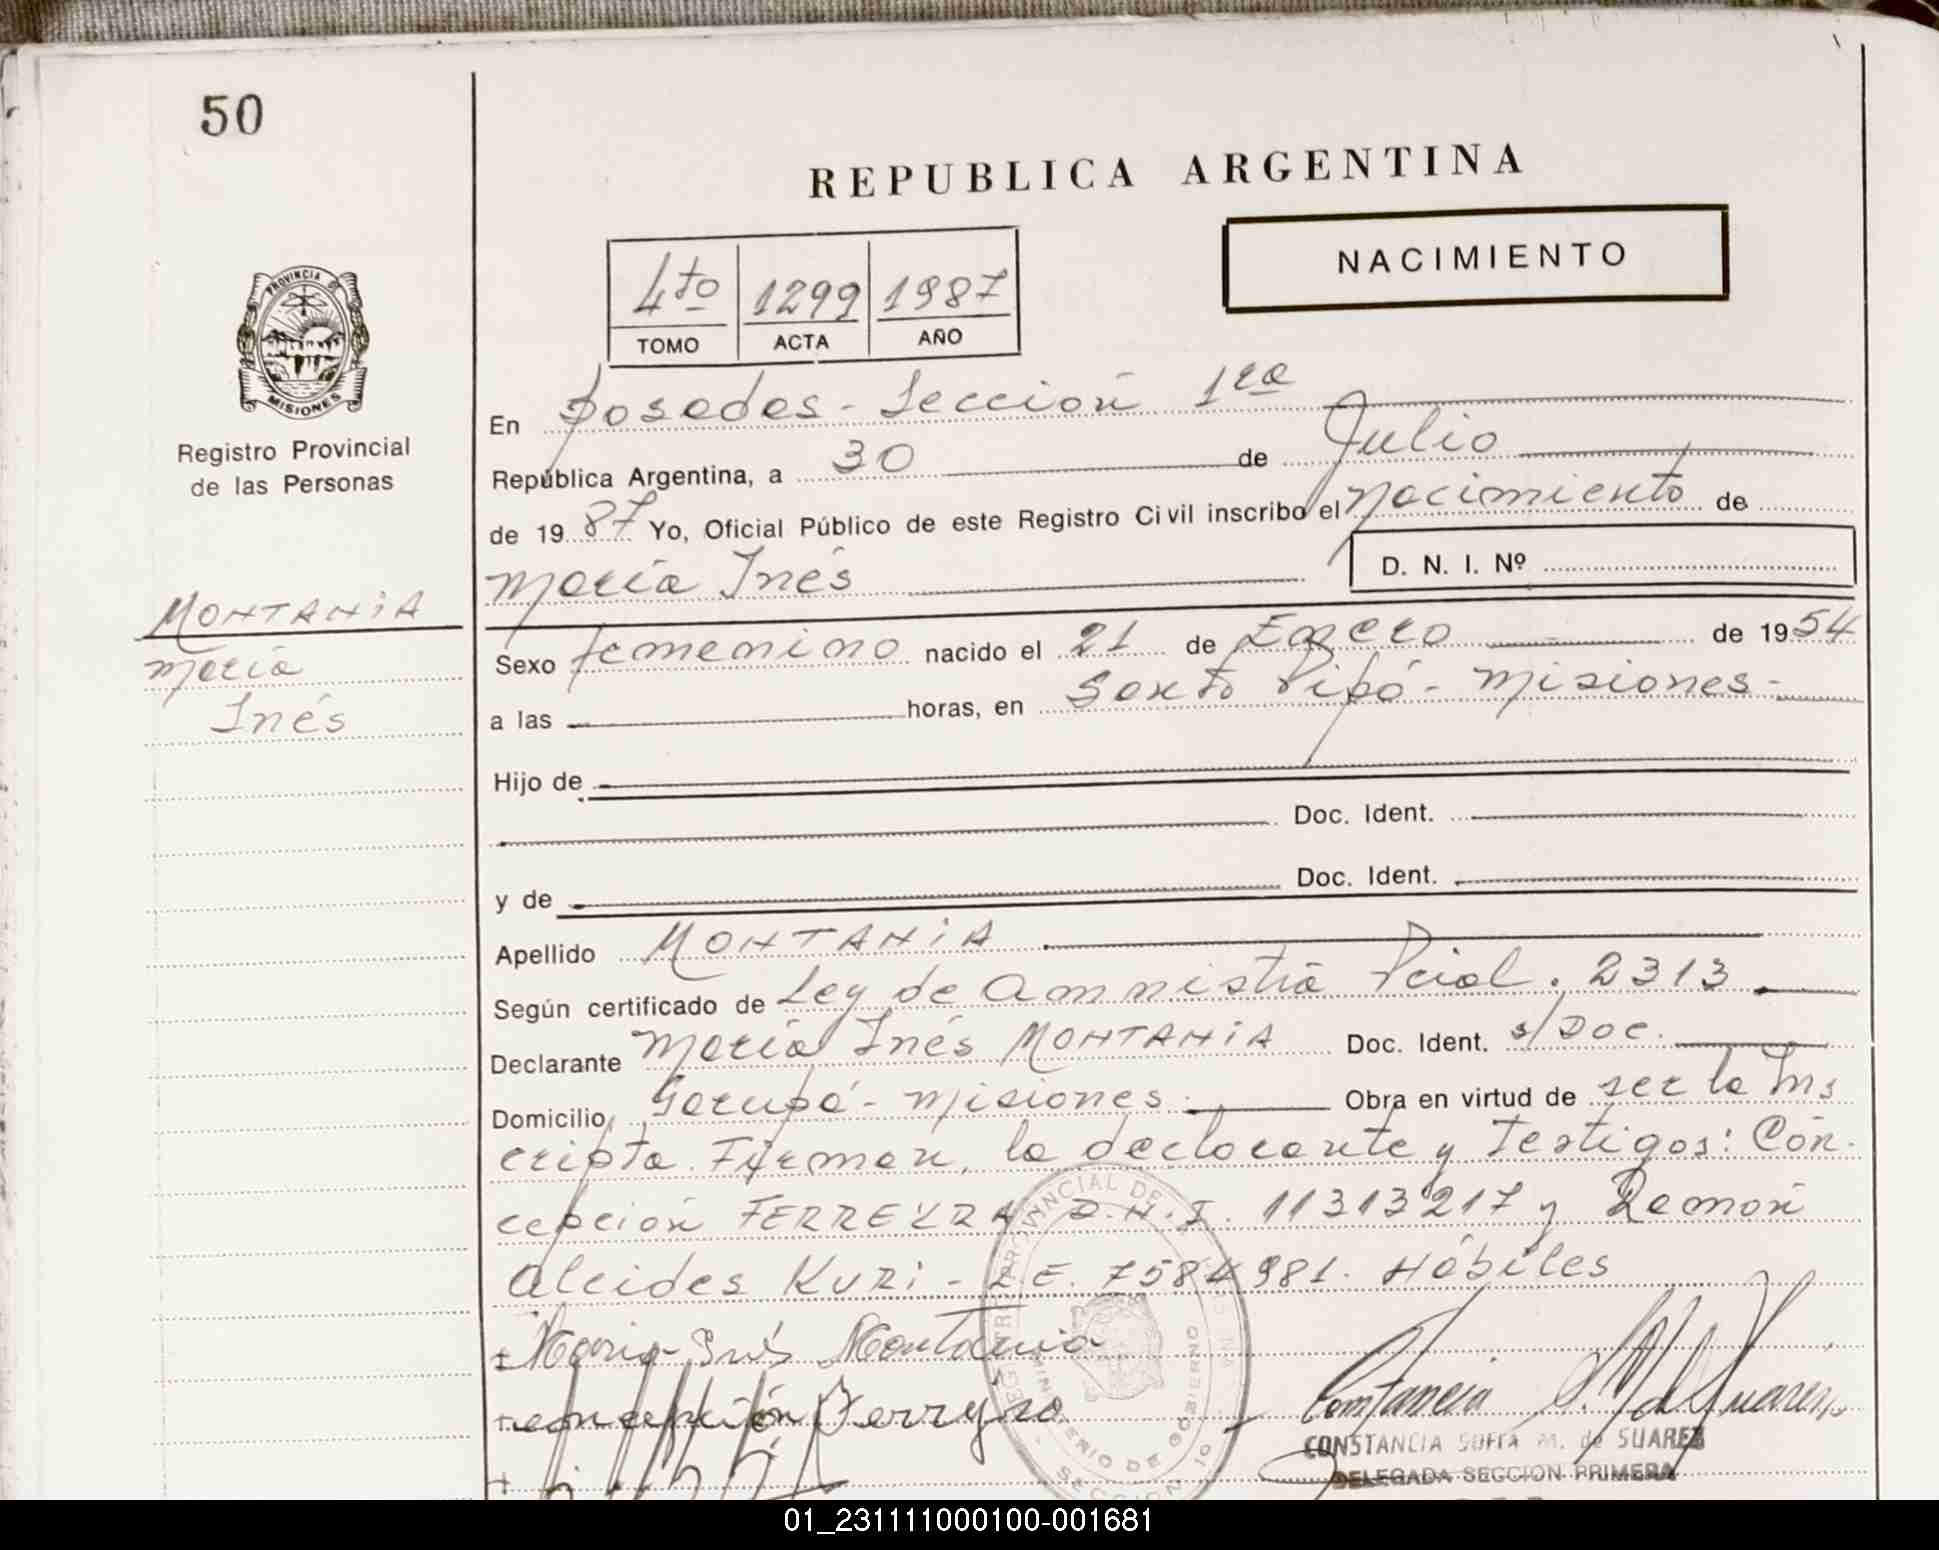 50
REPUBLICA ARGENTINA
NACIMIENTO
4to 1299 1987
TOMO ACTA AÑO
PROVINCIA DE
MISIONES
Registro Provincial
de las Personas
En Posadas - Sección 1ra
República Argentina, a 30 de Julio
de 1987 Yo, Oficial Público de este Registro Civil inscribo el Nacimiento de
María Inés D. N. I. Nº
MONTANiA
María
Inés
Sexo femenino nacido el 21 de Enero de 1954
a las horas, en Santo Pipó - Misiones -
Hijo de
Doc. Ident.
y de Doc. Ident.
Apellido MONTANiA
Según certificado de Ley de Amnistía Pcial. 2313
Declarante María Inés MONTANiA Doc. Ident. s/Doc.
Domicilio Garupá - Misiones Obra en virtud de ser la Ins
cripta. Firman, la declarante y Testigos: Con-
cepción FERREYRA D.N.I. 11313217 y Ramón
Alcides KURi - L.E. 7584981. Hábiles
Maria Inés Montania
concepción Ferreyra
Constancia S. M. de Suarez
CONSTANCIA SOFIA M. de SUAREZ
DELEGADA SECCION PRIMERA
MINISTERIO DE GOBIERNO
01_231111000100-001681